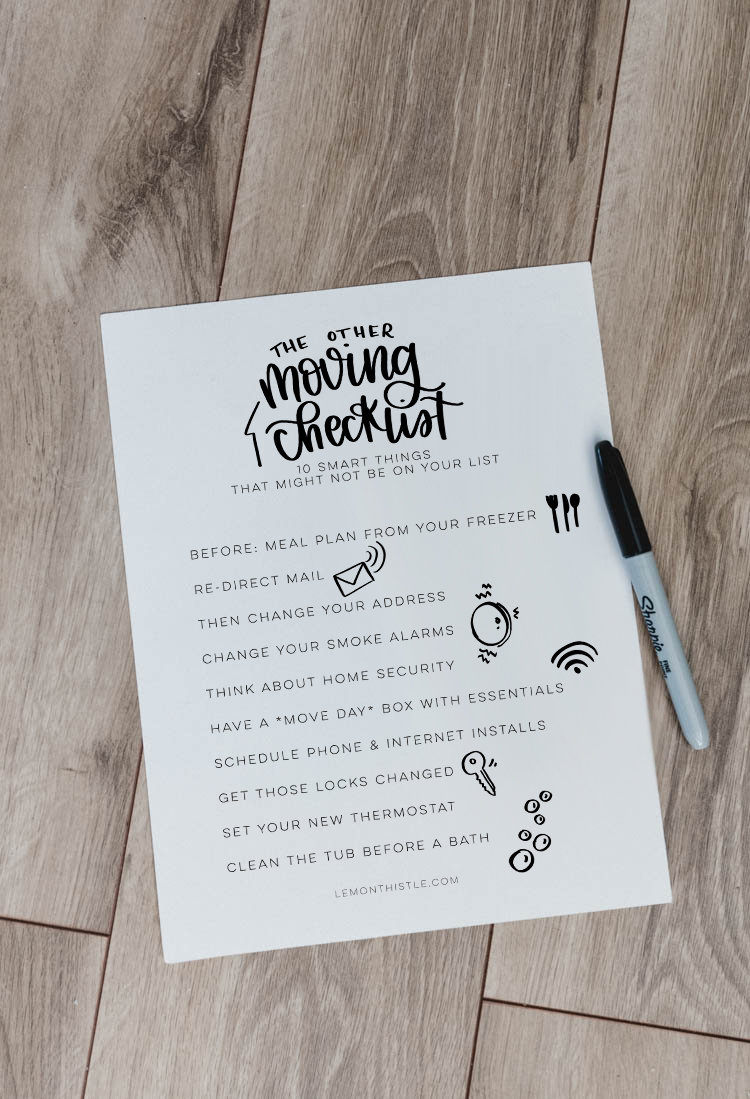 THE OTHER
moving
checklist
10 SMART THINGS
THAT MIGHT NOT BE ON YOUR LIST
BEFORE: MEAL PLAN FROM YOUR FREEZER
RE-DIRECT MAIL
THEN CHANGE YOUR ADDRESS
CHANGE YOUR SMOKE ALARMS
THINK ABOUT HOME SECURITY
HAVE A *MOVE DAY* BOX WITH ESSENTIALS
SCHEDULE PHONE & INTERNET INSTALLS
GET THOSE LOCKS CHANGED
SET YOUR NEW THERMOSTAT
CLEAN THE TUB BEFORE A BATH
LEMONTHISTLE.COM
Sharpie